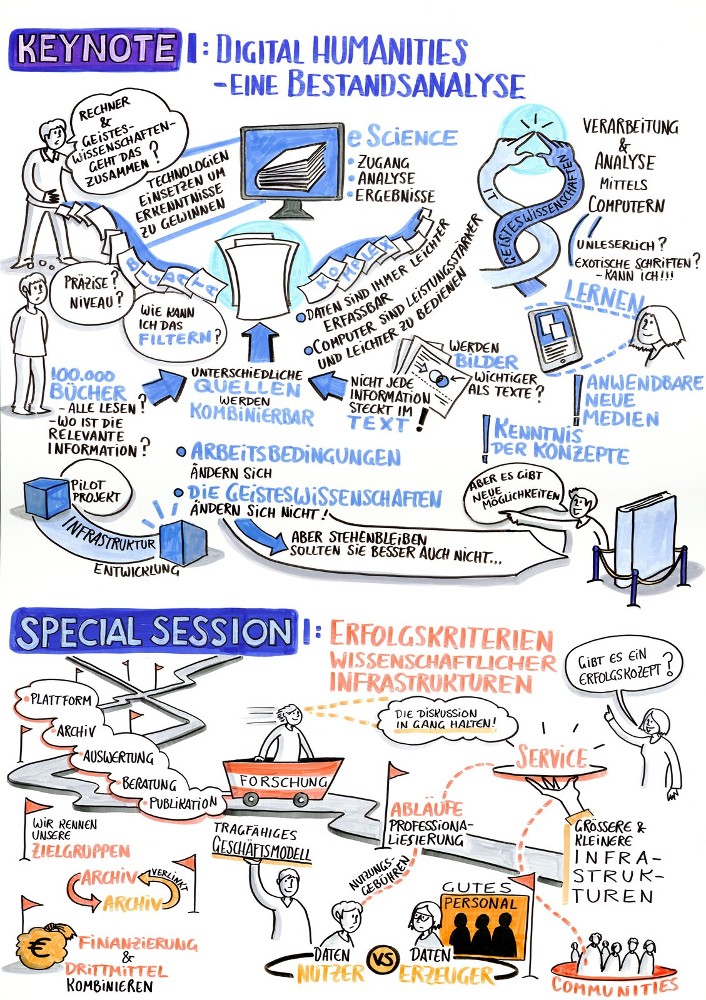 KEYNOTE I: DIGITAL HUMANITIES
- EINE BESTANDSANALYSE
RECHNER
&
GEISTES-
WISSENSCHAFTEN-
GEHT DAS
ZUSAMMEN?
TECHNOLOGIEN
EINSETZEN UM
ERKENNTNISSE
ZU GEWINNEN
e SCIENCE
• ZUGANG
• ANALYSE
• ERGEBNISSE
IT
GEISTESWISSENSCHAFTEN
VERARBEITUNG
&
ANALYSE
MITTELS
COMPUTERN
UNLESERLICH?
EXOTISCHE SCHRIFTEN?
- KANN ICH!!!
LERNEN
BIG DATA
KOMPLEX
PRÄZISE?
NIVEAU?
WIE KANN
ICH DAS
FILTERN?
• DATEN SIND IMMER LEICHTER
ERFASSBAR
• COMPUTER SIND LEISTUNGSSTÄRKER
UND LEICHTER ZU BEDIENEN
100.000
BÜCHER
- ALLE LESEN?
- WO IST DIE
RELEVANTE
INFORMATION?
UNTERSCHIEDLICHE
QUELLEN
WERDEN
KOMBINIERBAR
NICHT JEDE
INFORMATION
STECKT IM
TEXT!
WERDEN
BILDER
WICHTIGER
ALS TEXTE?
! ANWENDBARE
NEUE
MEDIEN
! KENNTNIS
DER KONZEPTE
• ARBEITSBEDINGUNGEN
ÄNDERN SICH
• DIE GEISTESWISSENSCHAFTEN
ÄNDERN SICH NICHT!
ABER STEHENBLEIBEN
SOLLTEN SIE BESSER AUCH NICHT...
PILOT
PROJEKT
INFRASTRUKTUR
ENTWICKLUNG
ABER ES GIBT
NEUE
MÖGLICHKEITEN
SPECIAL SESSION I: ERFOLGSKRITERIEN
WISSENSCHAFTLICHER
INFRASTRUKTUREN
GIBT ES EIN
ERFOLGSKOZEPT?
• PLATTFORM
• ARCHIV
• AUSWERTUNG
• BERATUNG
• PUBLIKATION
FORSCHUNG
DIE DISKUSSION
IN GANG HALTEN!
SERVICE
WIR KENNEN
UNSERE
ZIELGRUPPEN
ARCHIV
VERLINKT
ARCHIV
€
FINANZIERUNG
&
DRITTMITTEL
KOMBINIEREN
TRAGFÄHIGES
GESCHÄFTSMODELL
ABLÄUFE
PROFESSIONA-
LISIERUNG
NUTZUNGS-
GEBÜHREN
GUTES
PERSONAL
DATEN
NUTZER
VS
DATEN
ERZEUGER
GRÖSSERE &
KLEINERE
INFRA-
STRUK-
TUREN
COMMUNITIES